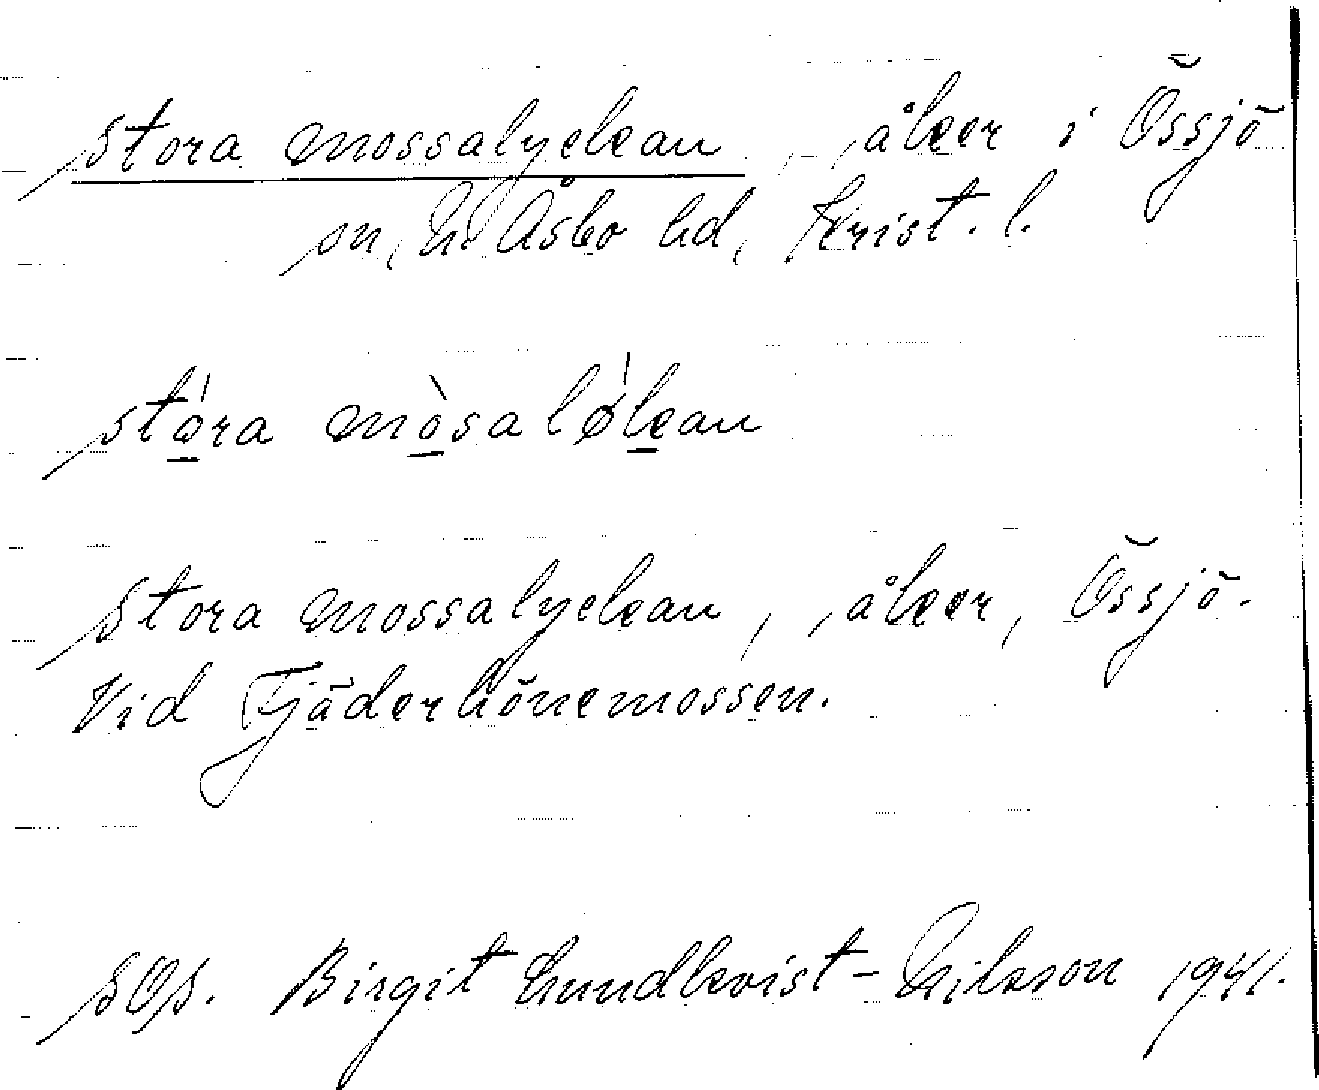 stora mossalyckan, åker i Össjö
sn, N. Åsbo hd, Krist. l.
stó̱ra mò̱salǿ̱kan
stora mossalyckan, åker, Össjö.
Vid Fjäderhönemossen.
SOS. Birgit Lundkvist-Nilsson 1941.